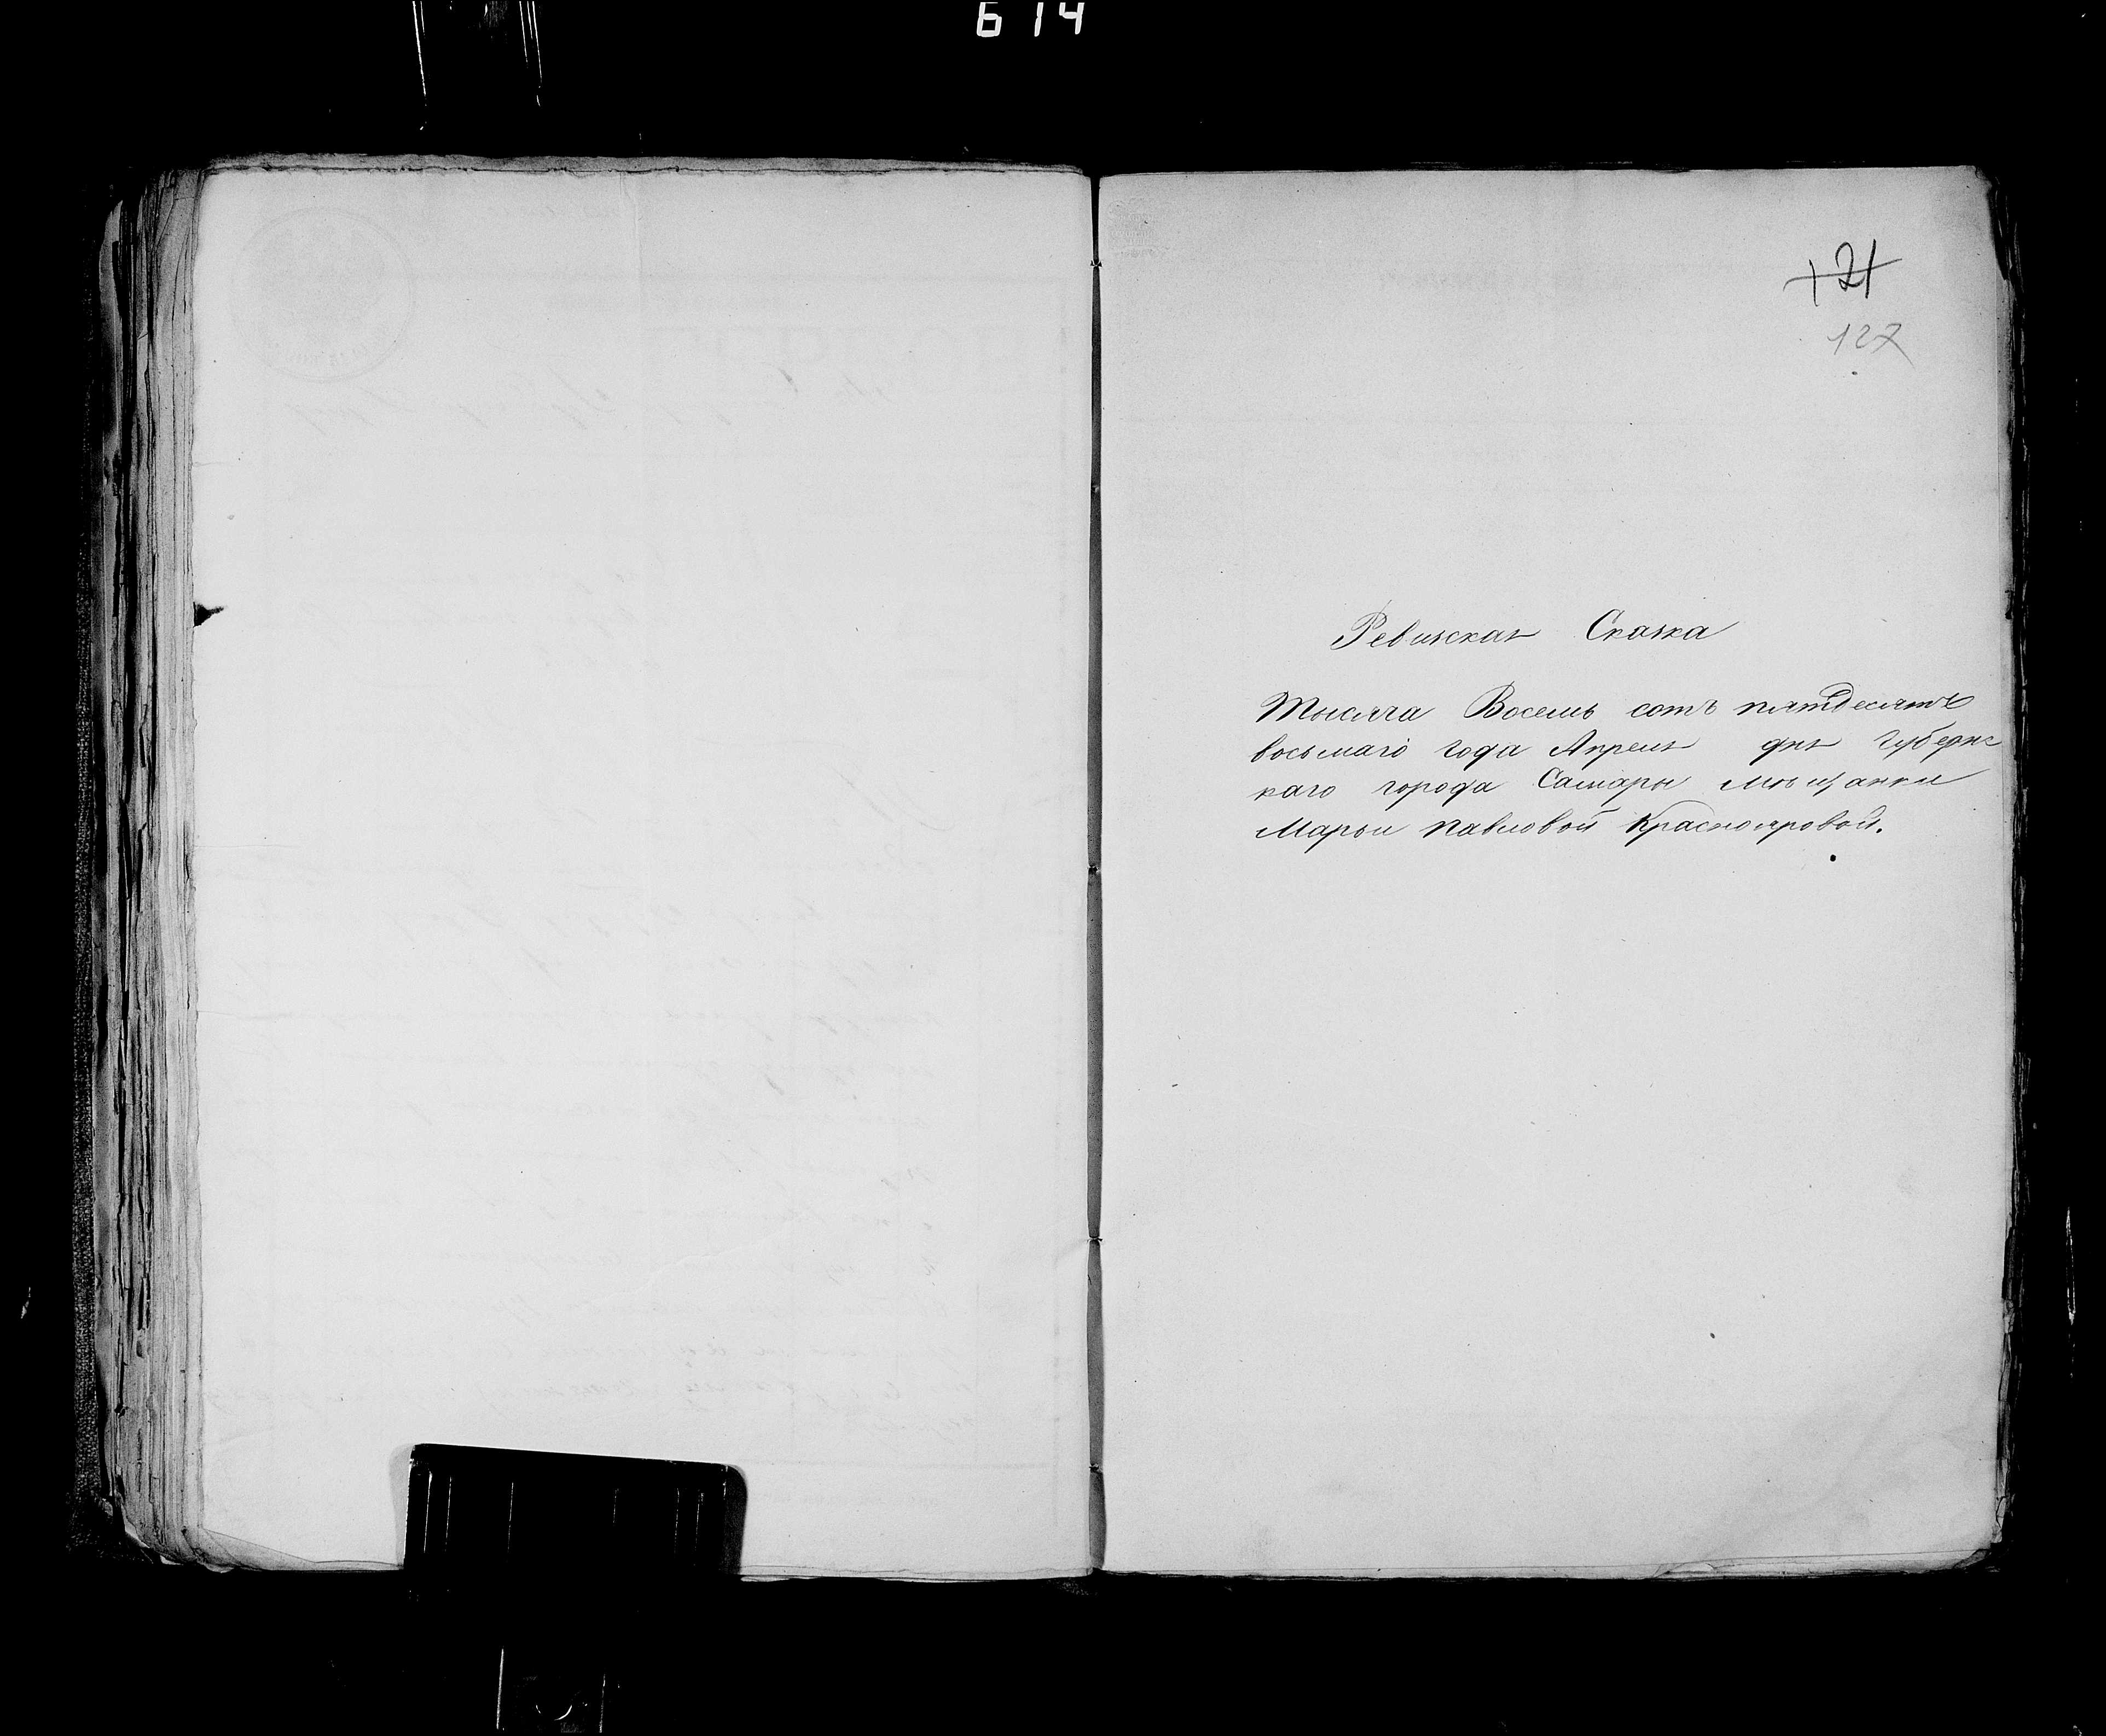 614
121
127
Ревизская Сказка
Тысяча Восемь сотъ пятдесятъ
восьмаго года Апреля дня Губернс
каго города Самары мѣщанки
Марьи Павловой Краснояровой.